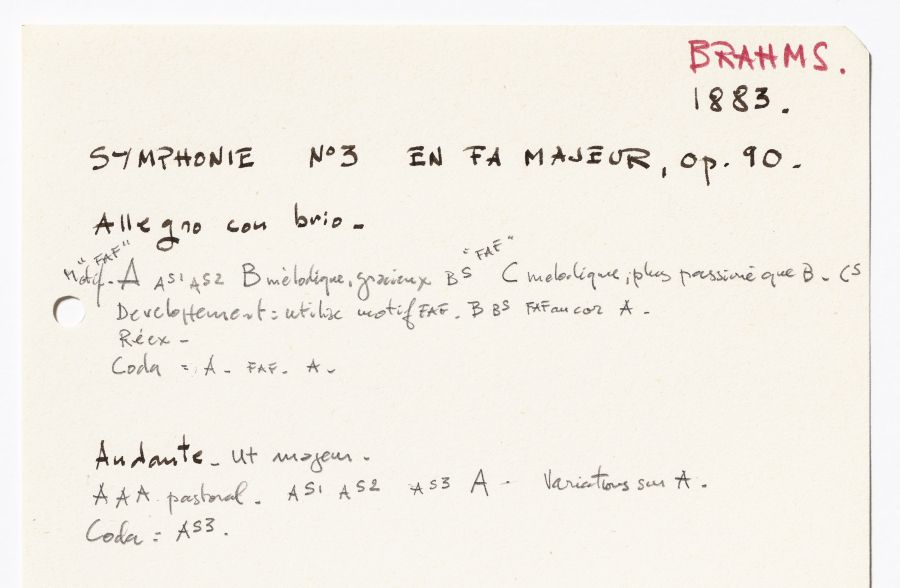 BRAHMS.
1883.
SYMPHONIE N°3 EN FA MAJEUR, op. 90.
Allegro con brio.
Motif "FAF" - A AS1 AS2 B mélodique, gracieux BS "FAF" C melodique, plus passioné que B. CS
Developpement: utilise motif FAF. B BS FAF au cor A.
Réex -
Coda = A. FAF. A.
Andante. Ut majeur.
AAA pastoral. AS1 AS2 AS3 A - Variations sur A.
Coda : AS3.